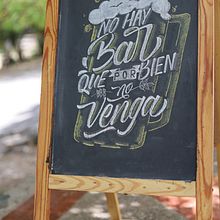 NO HAY
Bar
QUE POR BIEN
NO
Venga